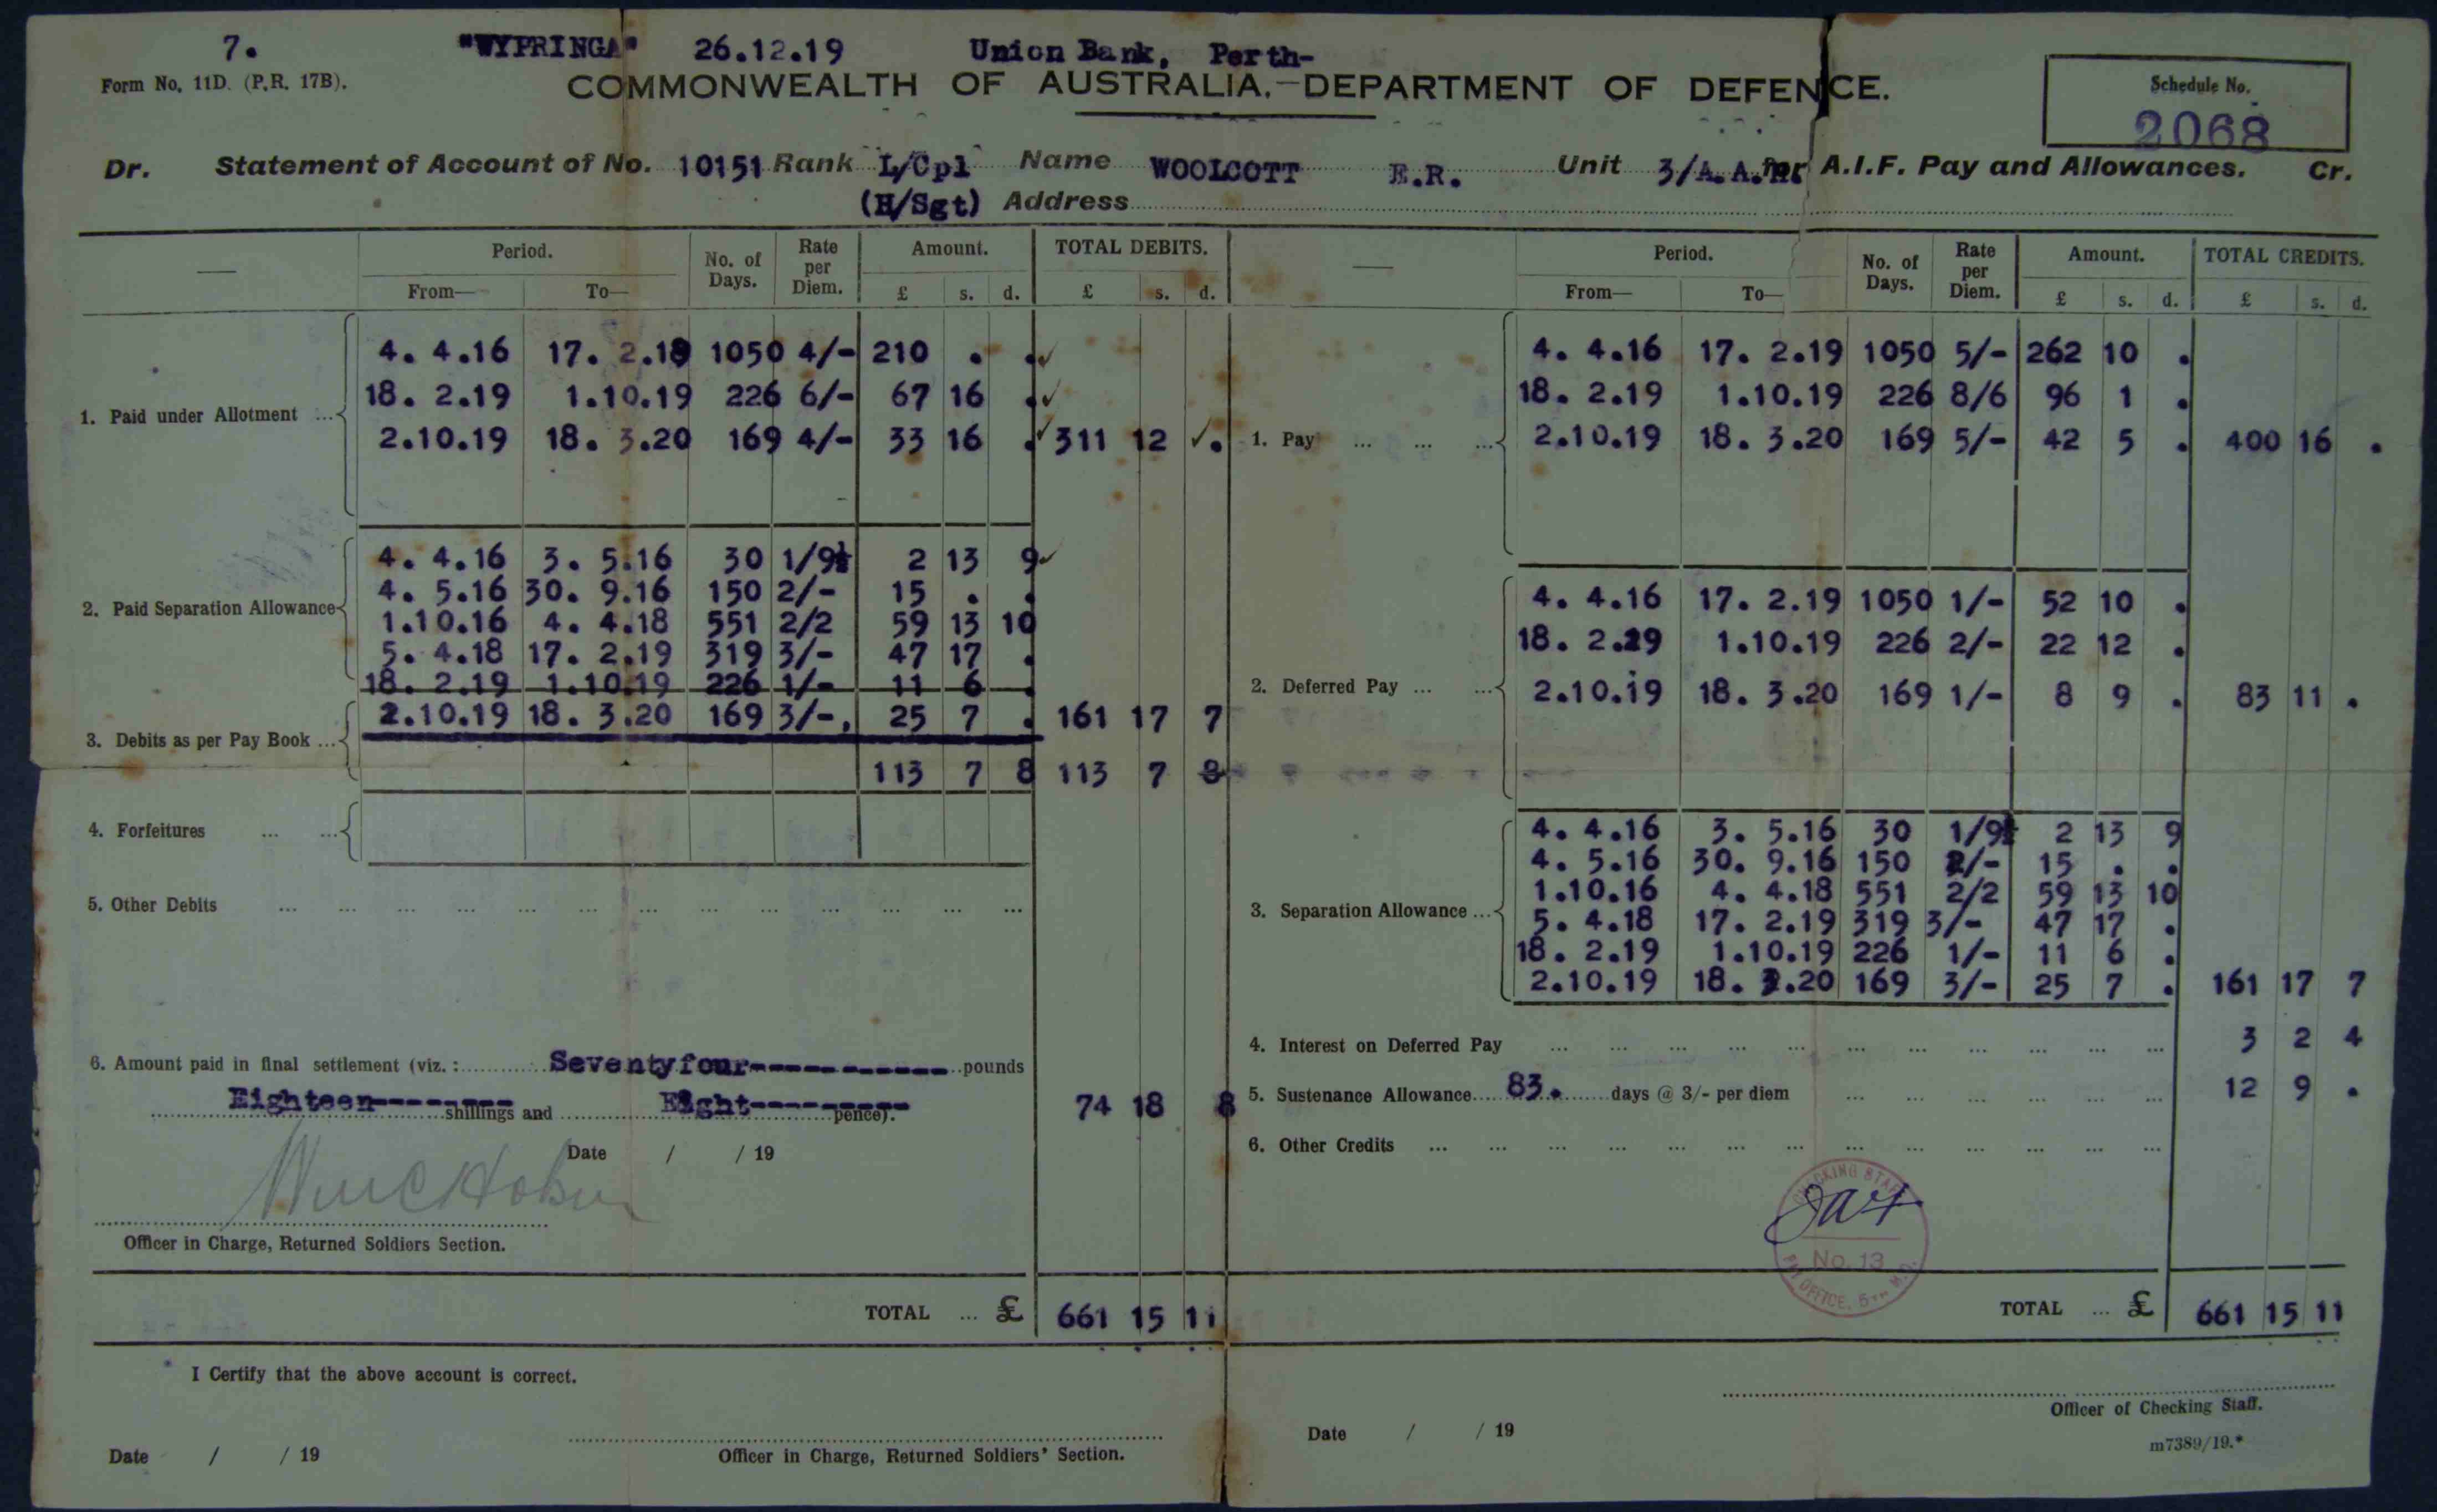 7. "WYPRINGA" 26.12.19 Union Bank, Perth-
Form No. 11D. (P.R. 17B).
COMMONWEALTH OF AUSTRALIA.—DEPARTMENT OF DEFENCE.
Schedule No.
2068
Dr. Statement of Account of No. 10151 Rank L/Cpl Name WOOLCOTT E.R. Unit 3/A.A.H. for A.I.F. Pay and Allowances. Cr.
(H/Sgt) Address
Period. No. of Days. Rate per Diem. Amount. TOTAL DEBITS.
From— To— £ s. d. £ s. d.
1. Paid under Allotment ...
4. 4.16 17. 2.19 1050 4/- 210 . .
18. 2.19 1.10.19 226 6/- 67 16 .
2.10.19 18. 3.20 169 4/- 33 16 . 311 12 .
2. Paid Separation Allowance
4. 4.16 3. 5.16 30 1/9½ 2 13 9
4. 5.16 30. 9.16 150 2/- 15 . .
1.10.16 4. 4.18 551 2/2 59 13 10
5. 4.18 17. 2.19 319 3/- 47 17 .
18. 2.19 1.10.19 226 1/- 11 6 .
2.10.19 18. 3.20 169 3/-. 25 7 . 161 17 7
3. Debits as per Pay Book ...
113 7 8 113 7 8
4. Forfeitures ... ...
5. Other Debits ... ... ... ... ... ... ... ... ... ... ... ... ...
6. Amount paid in final settlement (viz.: Seventyfour------------ pounds
Eighteen-------- shillings and Eight--------- pence). 74 18 8
Date / / 19
Officer in Charge, Returned Soldiers Section.
TOTAL ... £ 661 15 11
I Certify that the above account is correct.
Date / / 19
Officer in Charge, Returned Soldiers' Section.
Period. No. of Days. Rate per Diem. Amount. TOTAL CREDITS.
From— To— £ s. d. £ s. d.
1. Pay ... ... ...
4. 4.16 17. 2.19 1050 5/- 262 10 .
18. 2.19 1.10.19 226 8/6 96 1 .
2.10.19 18. 3.20 169 5/- 42 5 . 400 16 .
2. Deferred Pay ... ...
4. 4.16 17. 2.19 1050 1/- 52 10 .
18. 2.19 1.10.19 226 2/- 22 12 .
2.10.19 18. 3.20 169 1/- 8 9 . 83 11 .
3. Separation Allowance ...
4. 4.16 3. 5.16 30 1/9½ 2 13 9
4. 5.16 30. 9.16 150 2/- 15 . .
1.10.16 4. 4.18 551 2/2 59 13 10
5. 4.18 17. 2.19 319 3/- 47 17 .
18. 2.19 1.10.19 226 1/- 11 6 .
2.10.19 18. 3.20 169 3/- 25 7 . 161 17 7
4. Interest on Deferred Pay ... ... ... ... ... ... ... ... ... ... ... 3 2 4
5. Sustenance Allowance 83. days @ 3/- per diem ... ... ... ... ... ... 12 9 .
6. Other Credits ... ... ... ... ... ... ... ... ... ... ... ... ...
CHECKING STAFF
No. 13
PAY OFFICE, 5TH M.D.
TOTAL ... £ 661 15 11
Officer of Checking Staff.
Date / / 19
m7389/19.*